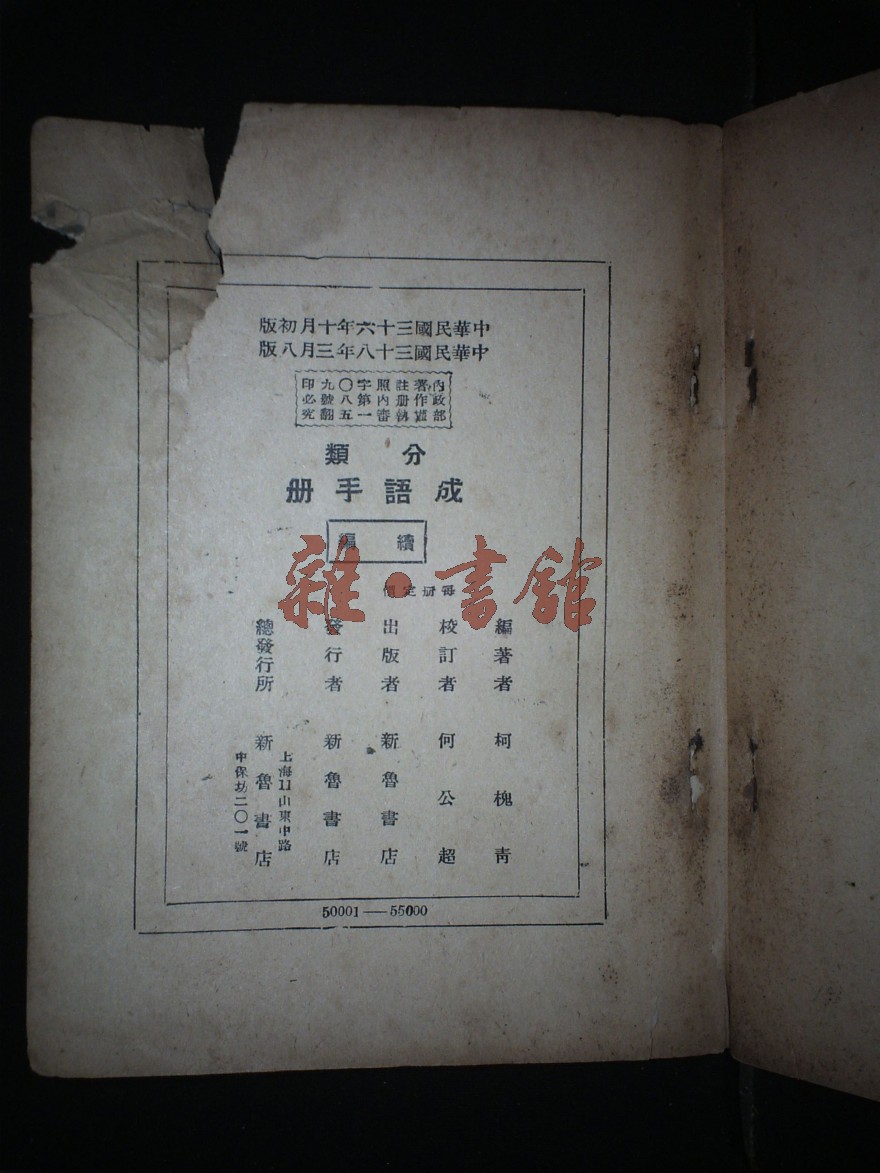 中華民國三十六年十月初版
中華民國三十八年三月八版
內政部
著作權
註册執
照內審
字第一
〇八五
九號翻
印必究
分類
成語手册
續編
每册定價
編著者 柯槐青
校訂者 何公超
出版者 新魯書店
發行者 新魯書店
總發行所 新魯書店
上海11山東中路
中保坊二〇一號
50001——55000
雜·書館